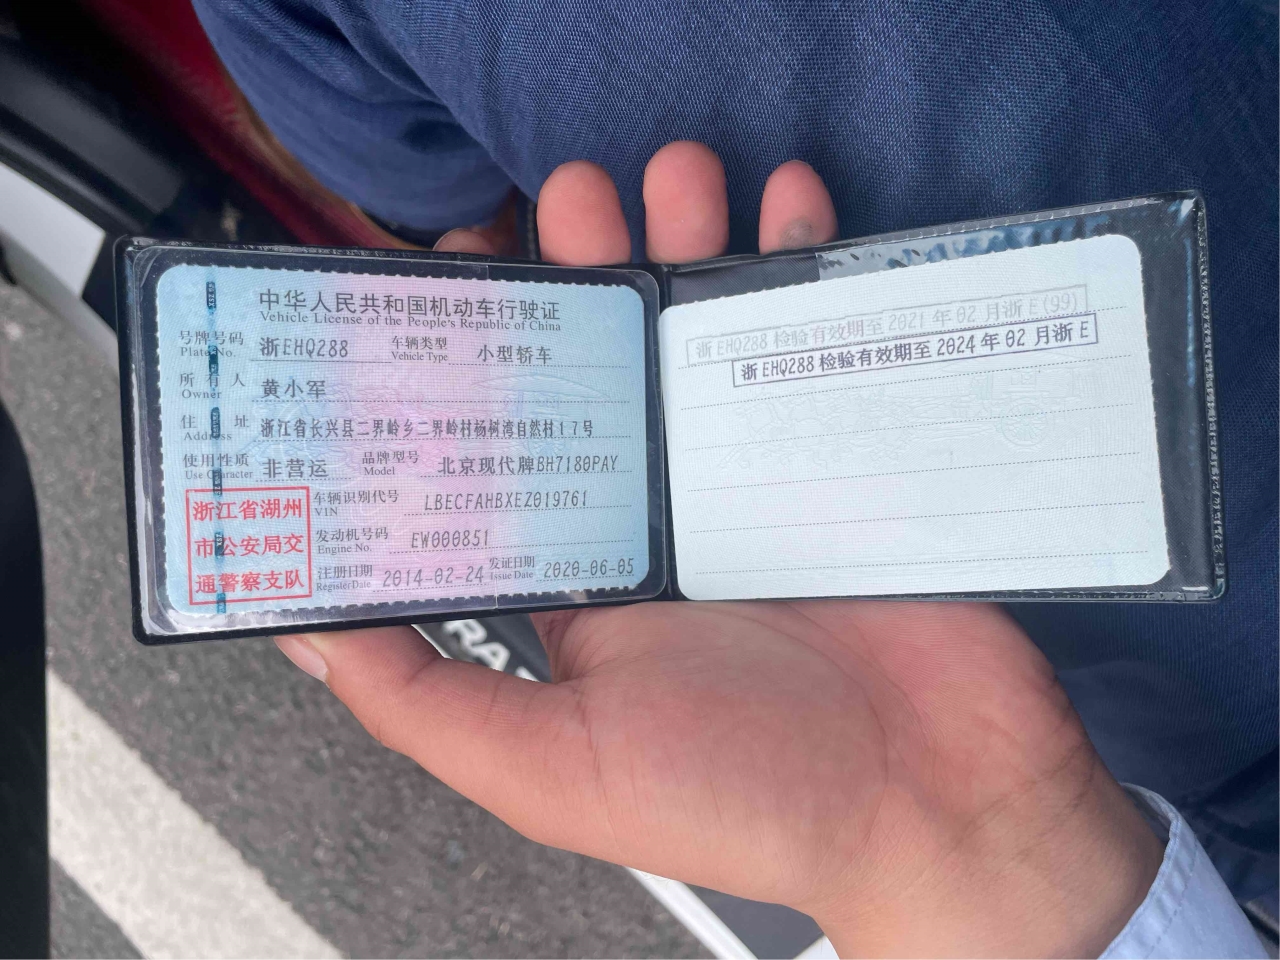 中华人民共和国机动车行驶证
Vehicle License of the People's Republic of China
号牌号码 浙EHQ288 车辆类型 小型轿车
Plate No. Vehicle Type
所有人 黄小军
Owner
住址 浙江省长兴县二界岭乡二界岭村杨树湾自然村17号
Address
使用性质 非营运 品牌型号 北京现代牌BH7180PAY
Use Character Model
浙江省湖州
市公安局交
通警察支队
车辆识别代号 LBECFAHBXEZ019761
VIN
发动机号码 EW000851
Engine No.
注册日期 2014-02-24 发证日期 2020-06-05
Register Date Issue Date
浙EHQ288 检验有效期至 2021 年 02 月浙 E(99)
浙 EHQ288 检验有效期至 2024 年 02 月浙 E